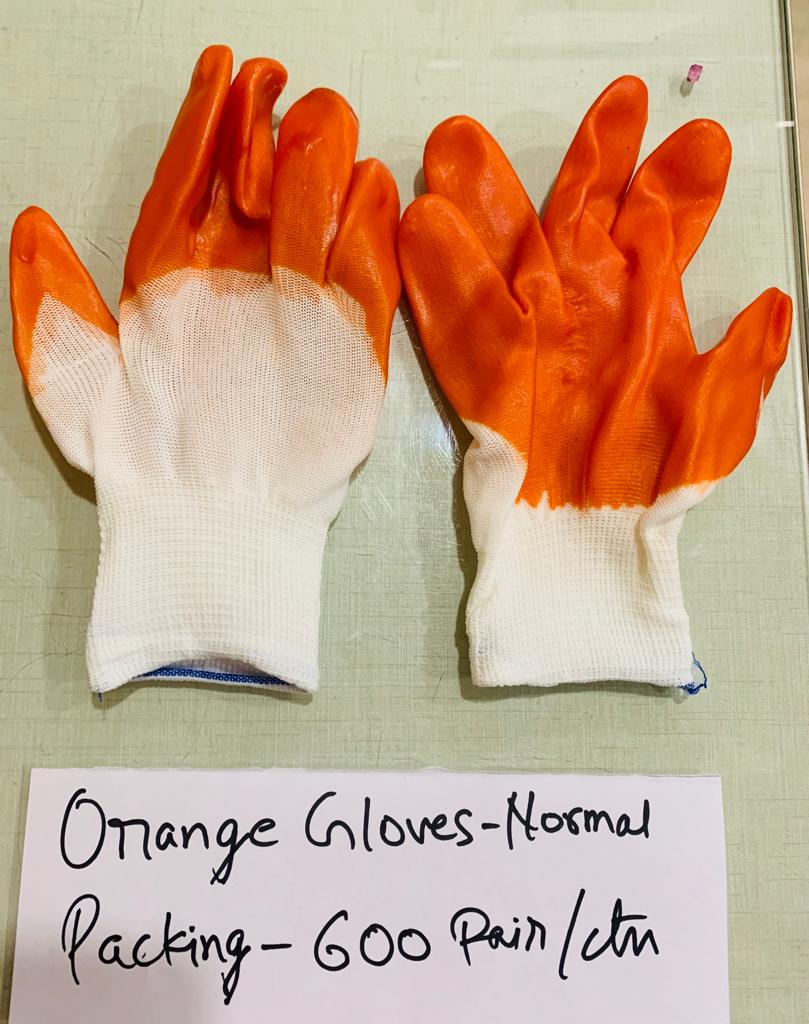 Orange Gloves-Normal
Packing- 600 Pair/ctn